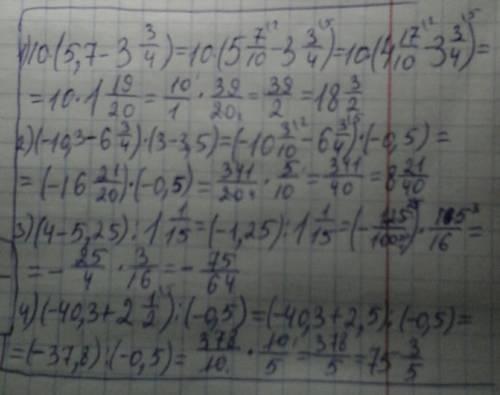 1) 10·(5,7 - 3 3/4) = 10·(5 7/10 - 3 3/4) = 10·(4 17/10 - 3 3/4) =
= 10·1 19/20 = 10/1 · 39/20 = 39/2 = 18 3/2
2) (-10,3 - 6 3/4)·(3-3,5) = (-10 3/10 - 6 3/4)·(-0,5) =
= (-16 21/20)·(-0,5) = 341/20 · 5/10 = 341/40 = 8 21/40
3) (4-5,25) : 1 1/15 = (-1,25) : 1 1/15 = (- 125/100) · 15/16 =
= - 25/4 · 3/16 = - 75/64
4) (-40,3 + 2 1/2) : (-0,5) = (-40,3 + 2,5) : (-0,5) =
= (-37,8) : (-0,5) = 378/10 · 10/5 = 378/5 = 75 3/5